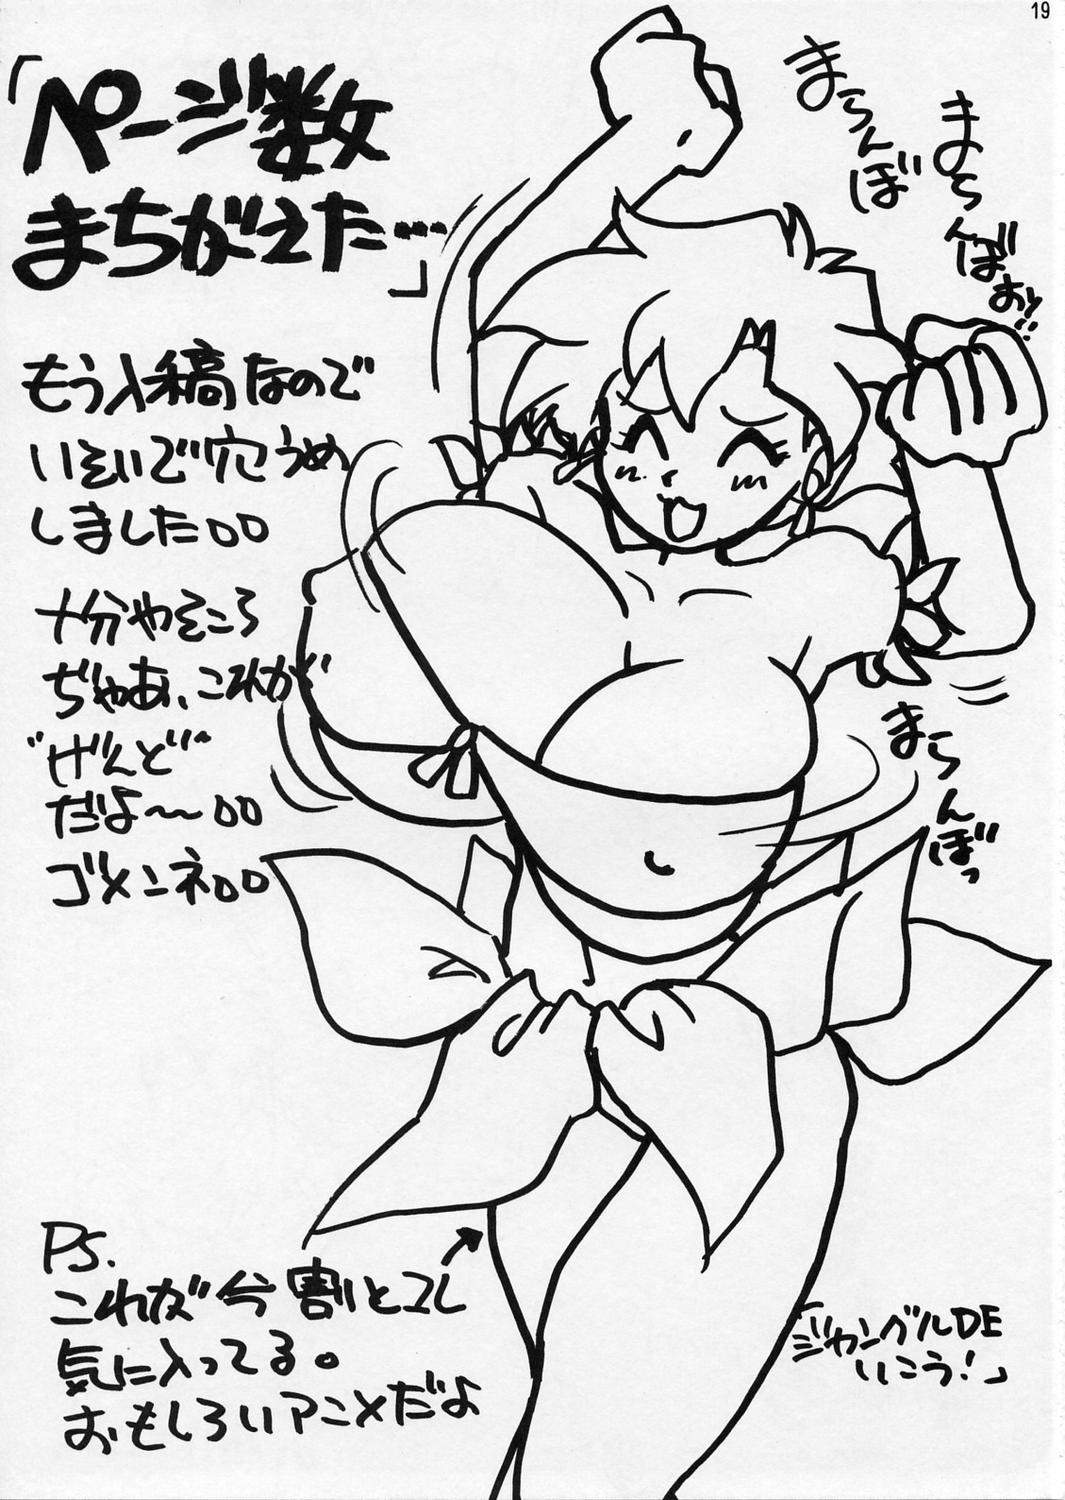 19
「ページ数
まちがえた…」
もう入稿なので
いそいで穴うめ
しました○○
十分やそころ
ぢゃあ、これが
"げんど"
だよ〜○○
ゴメンネ○○
まらんぼ
まらんぼ
まらんばおッ!!
まらんぼっ
PS.
これが今割とコレ
気に入ってる。
おもしろいアニメだよ
「ジャングルDE
いこう!」